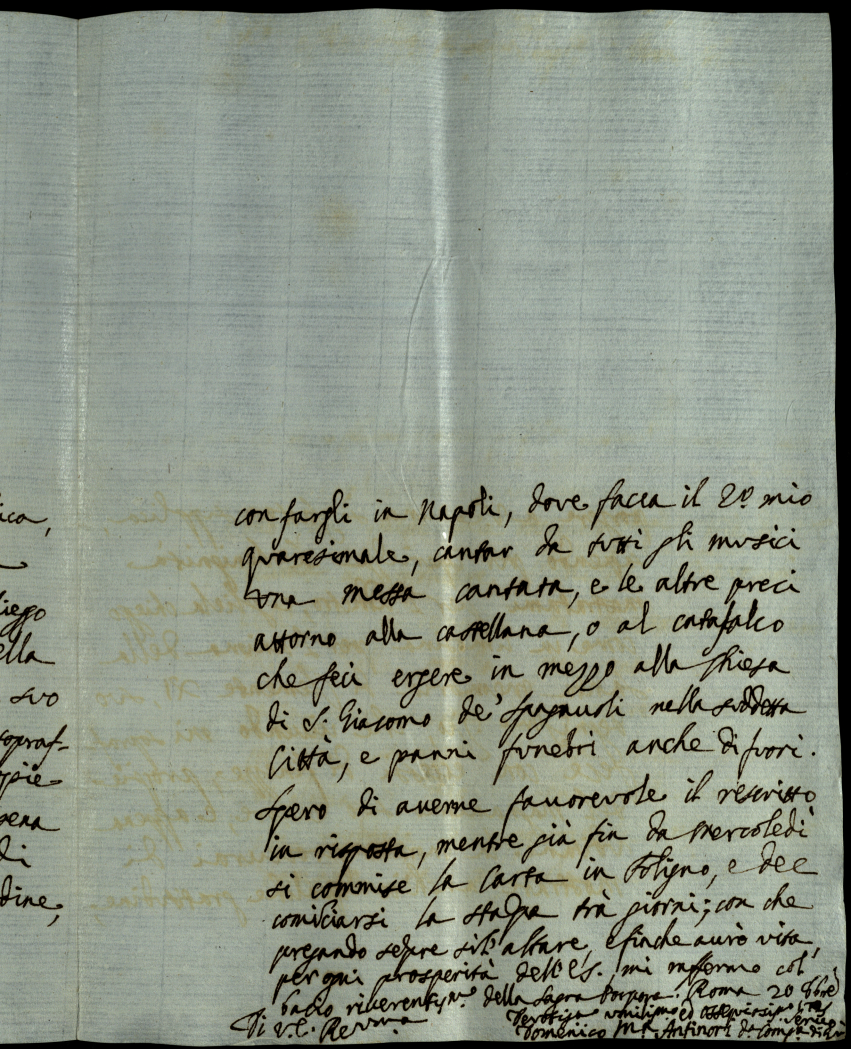 ica,
con fargli in Napoli, dove facea il 2º mio
quaresimale, cantar da tutti gli musici
una messa cantata, e le altre preci
iego
attorno alla castellana, o al catafalco
ella
che feci ergere in mezzo alla Chiesa
suo
di S. Giacomo de' Spagnuoli nella suddetta
sopraf-
Città, e panni funebri anche di fuori.
opie
Spero di averne favorevole il rescritto
pena
in risposta, mentre già fin da Mercoledì
di
si commise la Carta in Foligno, e dee
dine,
comĩciarsi la stãpa trà giorni; con che
pregando sẽpre sũll'altare, e finche avrò vita,
per ogni prosperità dell'E.S. mi raffermo col
bacio riverentiss.mo della Sagra Porpora. Roma 20 8bre
Di V.E. Rev.ma
Devotiss.o umilissimo ed ossequiosiss.o
Domenico M.a Antinori da Comp.a di